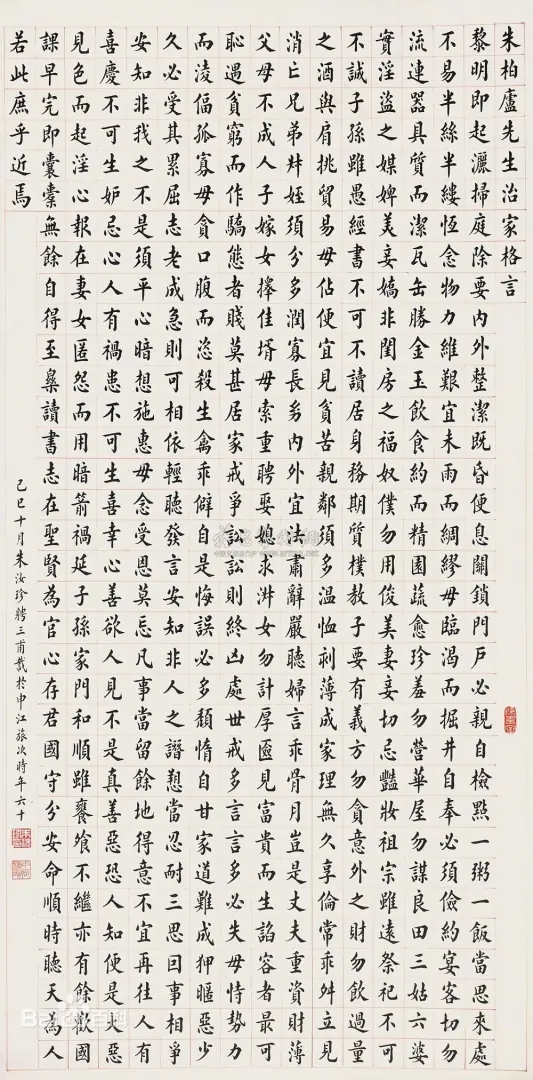 朱柏廬先生治家格言
黎明即起灑掃庭除要內外整潔既昏便息關鎖門戶必親自檢點一粥一飯當思來處
不易半絲半縷恆念物力維艱宜未雨而綢繆毋臨渴而掘井自奉必須儉約宴客切勿
流連器具質而潔瓦缶勝金玉飲食約而精園蔬愈珍羞勿營華屋勿謀良田三姑六婆
實淫盜之媒婢美妾嬌非閨房之福奴僕勿用俊美妻妾切忌豔妝祖宗雖遠祭祀不可
不誠子孫雖愚經書不可不讀居身務期質樸教子要有義方勿貪意外之財勿飲過量
之酒與肩挑貿易毋佔便宜見貧苦親鄰須多溫恤刻薄成家理無久享倫常乖舛立見
消亡兄弟叔姪須分多潤寡長幼內外宜法肅辭嚴聽婦言乖骨月豈是丈夫重資財薄
父母不成人子嫁女擇佳壻毋索重聘娶媳求淑女勿計厚匳見富貴而生諂容者最可
恥遇貧窮而作驕態者賤莫甚居家戒爭訟訟則終凶處世戒多言言多必失毋恃勢力
而淩偪孤寡毋貪口腹而恣殺生禽乖僻自是悔誤必多頹惰自甘家道難成狎暱惡少
久必受其累屈志老成急則可相依輕聽發言安知非人之譖愬當忍耐三思因事相爭
安知非我之不是須平心暗想施惠毋念受恩莫忘凡事當留餘地得意不宜再往人有
喜慶不可生妒忌心人有禍患不可生喜幸心善欲人見不是真善惡恐人知便是大惡
見色而起淫心報在妻女匿怨而用暗箭禍延子孫家門和順雖饔飧不繼亦有餘歡國
課早完即囊橐無餘自得至樂讀書志在聖賢為官心存君國守分安命順時聽天為人
若此庶乎近焉
己巳十月朱汝珍聘三甫於申江旅次時年六十
Bai百科